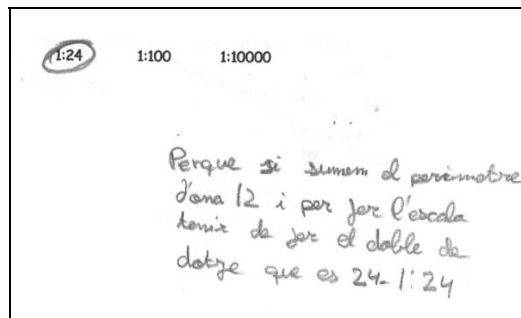 1:24 1:100 1:10000
Perque si sumem el perimetre
d'ona 12 i per fer l'escala
tenir de fer el doble de
dotze que es 24- 1:24